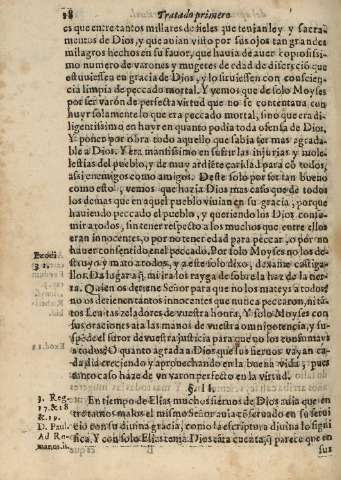 18 Tratado primero
es que entre tantos millares de fieles que tenian ley y sacra-
mentos de Dios, y que auian visto por sus ojos tan grandes
milagros hechos en su fauor, que hauia de auer copiosissi-
mo numero de varones y mugeres de edad de discreció que
estuuiessen en gracia de Dios, y lo siruiessen con conscien-
cia limpia de peccado mortal. Y vemos que de solo Moyses
por ser varón de perfecta virtud que no se contentaua con
huyr solamente lo que era peccado mortal, sino que era di-
ligentissimo en huyr en quanto podia toda ofensa de Dios,
Y poner por obra todo aquello que sabia ser mas agrada-
ble a Dios. Y era mansissimo en sufrir las injurias y mole-
stias del pueblo, y de muy ardiéte caridad para có todos,
assi enemigos como amigos. Deste solo por ser tan bueno
como esto, vemos que hazia Dios mas caso que de todos
los demas que en aquel pueblo viuian en su gracia, porque
hauiendo peccado el pueblo, y queriendo los Dios consu-
mir a todos, sin tener respecto a los muchos que entre ellos
eran innocentes, o por no tener edad para peccar, o por no
hauer consentido en el peccado. Por solo Moyses no los de-
Exodi
32.
struyo y mato a todos, y a este solo dixo, dexame castiga-
llos.
tos Leuitas zeladores de vuestra honra, Y solo Moyses con
sus oraciones ata las manos de vuestra omnipotencia, y sus-
péde el furor de vuestra justicia para que no los consumays
a todos? O quanto agrada a Dios que sus sieruos vayan ca-
da dia creciendo y aprouechando en la buena vida, pues
tanto caso haze de vn varon perfecto en la virtud.
§. II.
3. Reg.
17. & 18
& 19.
D. Paul.
Ad Ro-
manos.11.
En tiempo de Elias muchos sieruos de Dios auia que en-
tre tantos malos el mismo Señor auia cóseruado en su serui-
cio con su diuina gracia, como la escriptura diuina lo signi-
fica. Y con solo Elias tenia Dios táta cuéta, q̃ parece que en
sus